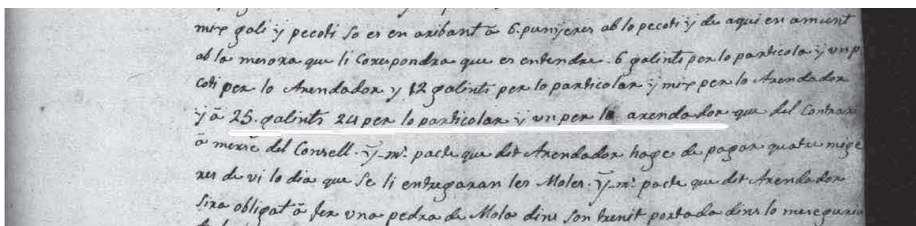 mix galí y pecotí so es en aribant â 6. punyeres ab lo pecotí y de aquí en amunt
ab la mesora que li Corespondra que es entendre. 6 galints per lo particola y un p
cotí per lo Arendador y 12 galints per lo particolar y mix per lo Arendador
y â 25. galints 24 per lo particolar y un per lo arendador que del Contrari
â merse del Consell. Y mᵗ. pacte que dit Arendador hage de pagar quatre mige
res de vi lo dia que se li entregaran les Moles. Y mᵗ. pacte que dit Arendador
sira obligat â fer una pedra de Mola dins son trenit portada dins lo